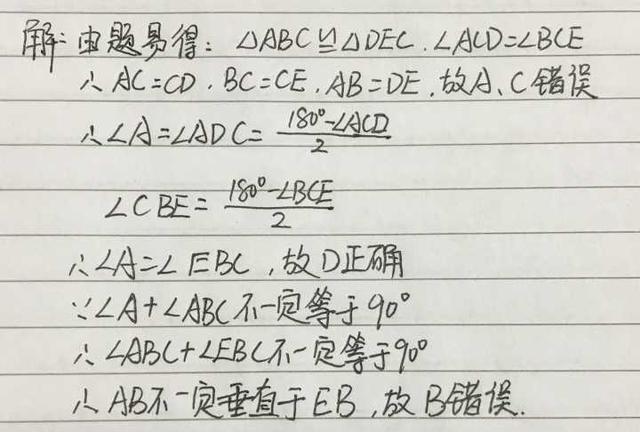 解: 由题易得: △ABC≌△DEC. ∠ACD=∠BCE
∴ AC=CD. BC=CE. AB=DE. 故A、C错误
∴∠A=∠ADC= (180°-∠ACD)/2
∠CBE= (180°-∠BCE)/2
∴∠A=∠EBC, 故D正确
∵∠A+∠ABC不一定等于90°
∴∠ABC+∠EBC不一定等于90°
∴AB不一定垂直于EB, 故B错误.